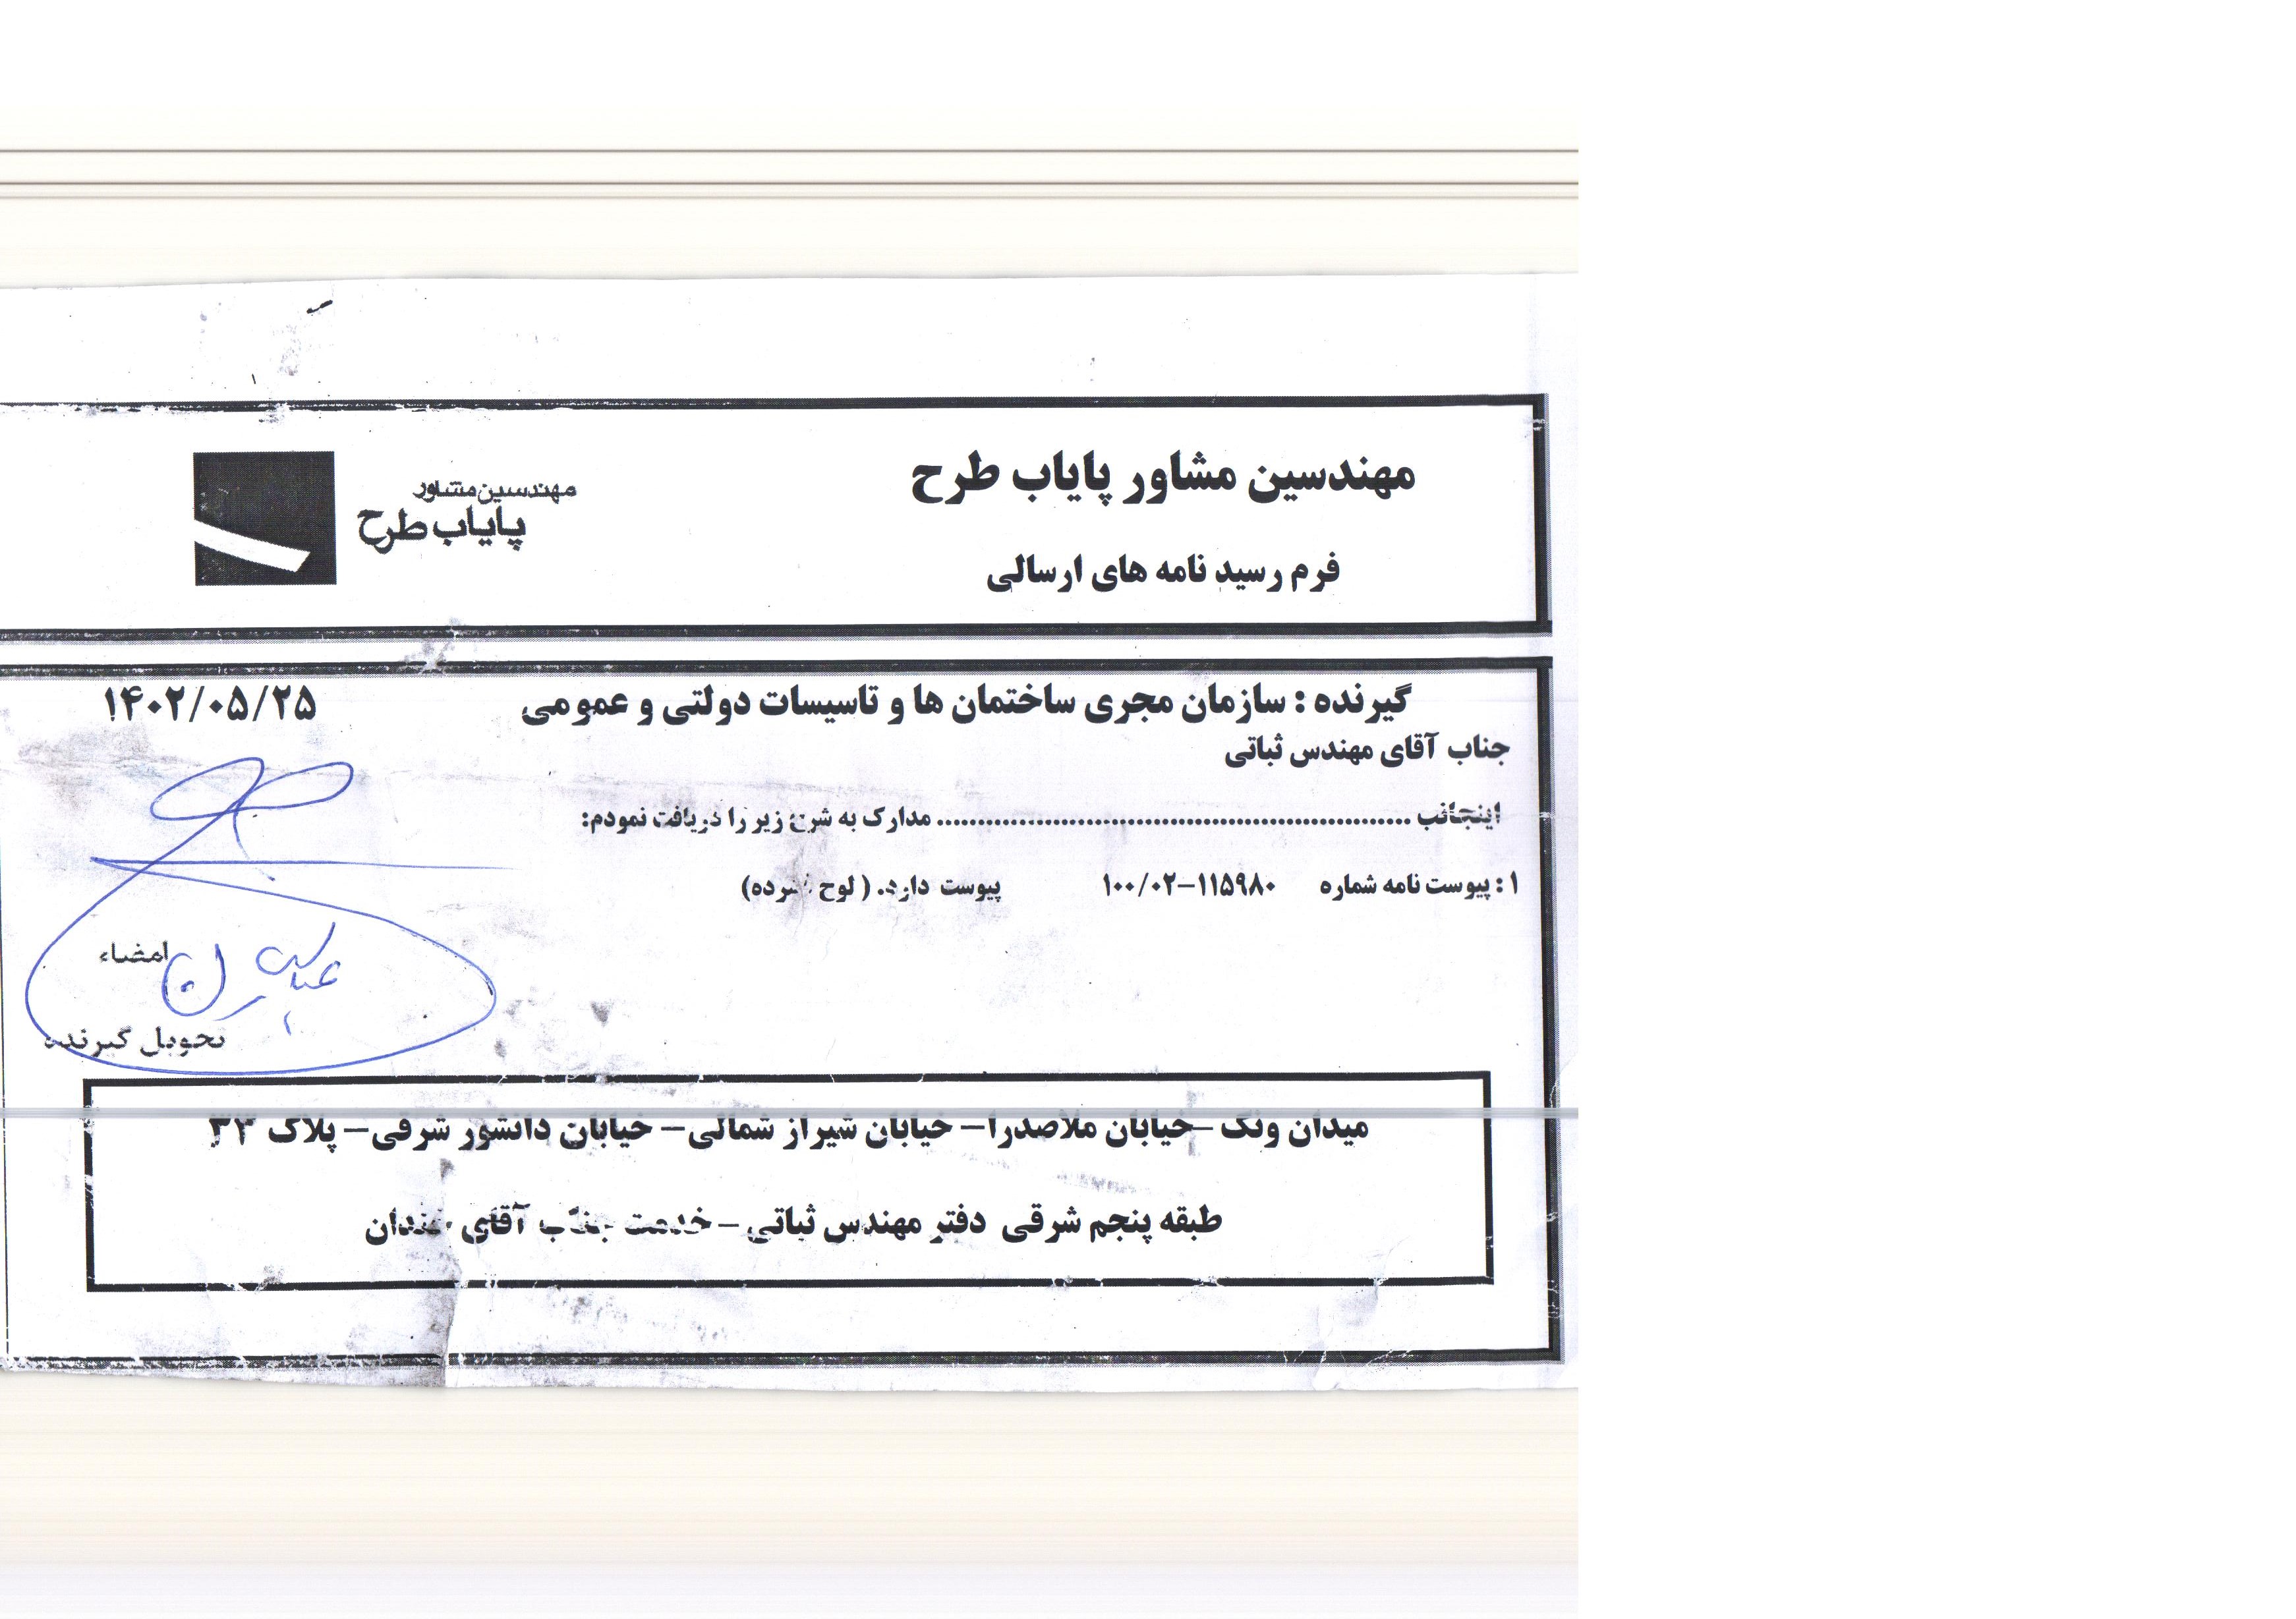 مهندسین مشاور پایاب طرح
مهندسین مشاور
پایاب طرح
فرم رسید نامه های ارسالی
گیرنده : سازمان مجری ساختمان ها و تاسیسات دولتی و عمومی
۱۴۰۲/۰۵/۲۵
جناب آقای مهندس ثباتی
اینجانب .......................................................... مدارک به شرح زیر را دریافت نمودم:
۱ : پیوست نامه شماره ۱۰۰/۰۲-۱۱۵۹۸۰ پیوست دارد. ( لوح فشرده)
امضاء
تحویل گیرنده
میدان ونک –خیابان ملاصدرا– خیابان شیراز شمالی– خیابان دانشور شرقی– پلاک ۳۳
طبقه پنجم شرقی دفتر مهندس ثباتی – خدمت جناب آقای